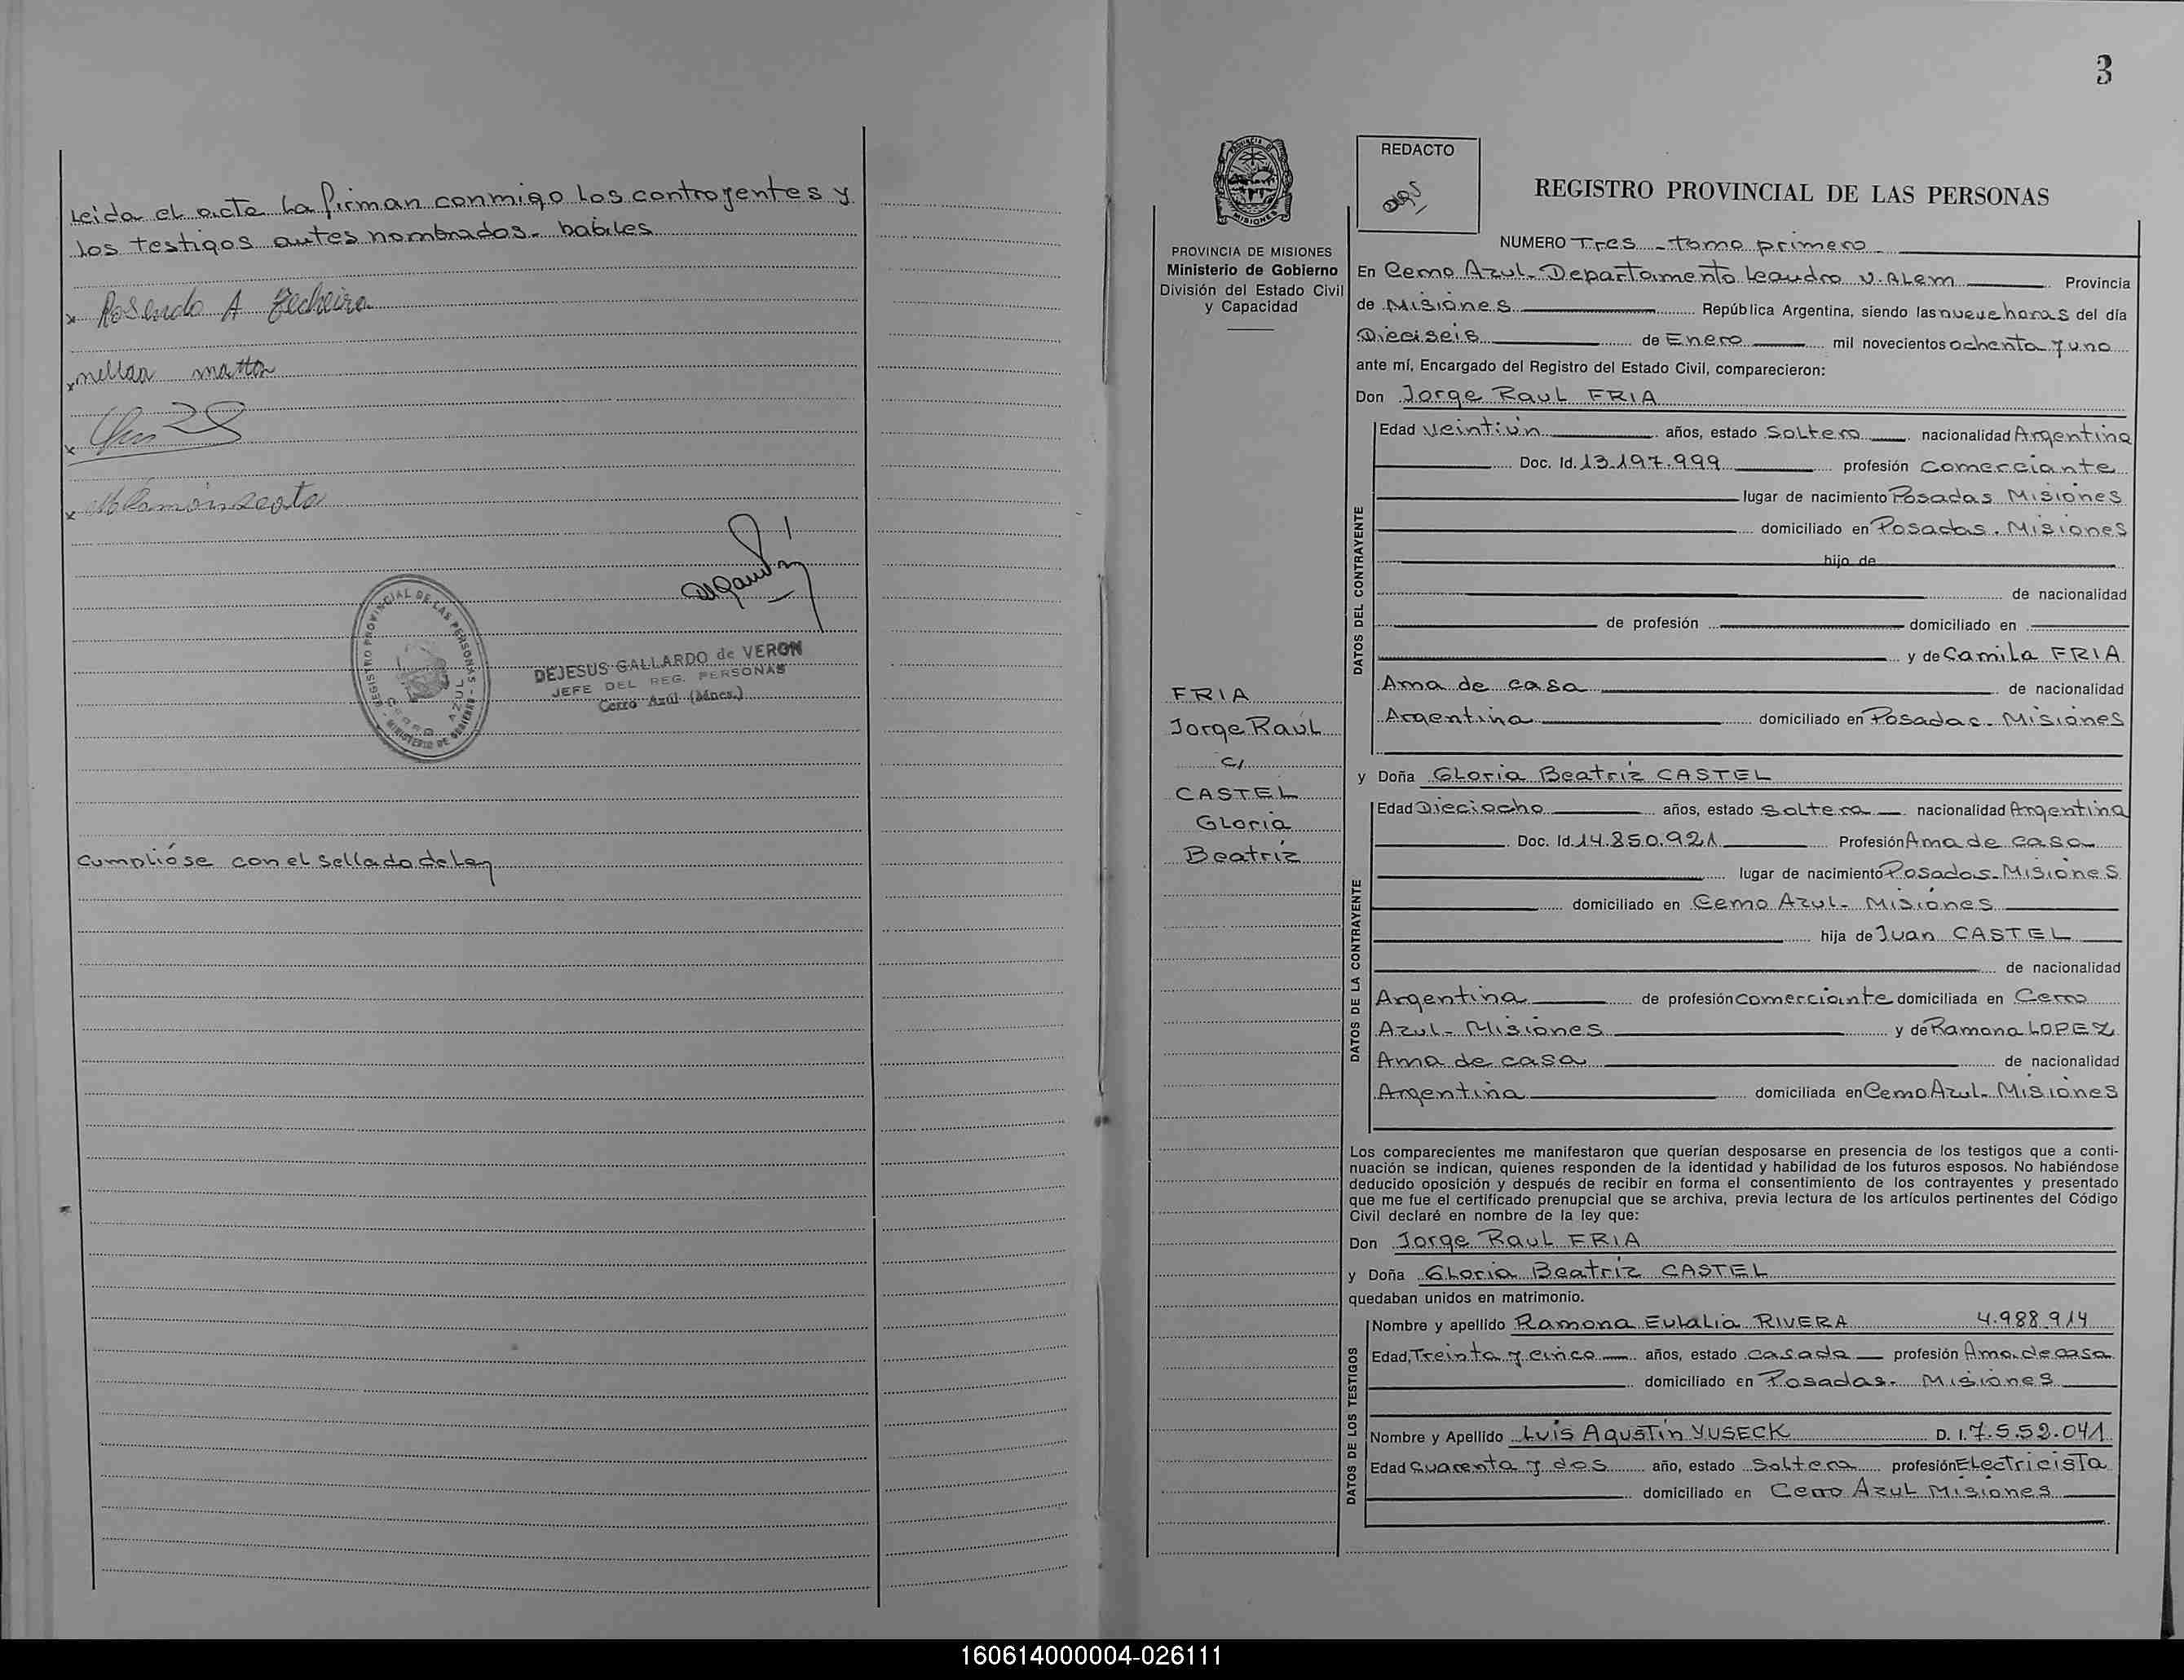 Leida el acta la firman conmigo los controyentes y
los testigos antes nombrados - habiles
x Rosendo A
x nellar matto
x
x
REGISTRO PROVINCIAL DE LAS PERSONAS - MINISTERIO DE GOBIERNO -
CERRO AZUL
DEJESUS GALLARDO de VERON
JEFE DEL REG. PERSONAS
Cerro Azul (Mnes.)
Cumplióse con el sellado de Ley
3
PROVINCIA DE MISIONES
Ministerio de Gobierno
División del Estado Civil
y Capacidad
FRIA
Jorge Raúl
c/
CASTEL
Gloria
Beatriz
REDACTO
REGISTRO PROVINCIAL DE LAS PERSONAS
NUMERO Tres - tomo primero
En Cerro Azul - Departamento Leandro N. Alem Provincia
de Misiones República Argentina, siendo las nueve horas del día
Dieciseis de Enero mil novecientos ochenta y uno
ante mí, Encargado del Registro del Estado Civil, comparecieron:
Don Jorge Raul FRIA
DATOS DEL CONTRAYENTE
Edad veintiún años, estado Soltero nacionalidad Argentina
Doc. Id. 13.197.999 profesión comerciante
lugar de nacimiento Posadas Misiones
domiciliado en Posadas. Misiones
hijo de
de nacionalidad
de profesión domiciliado en
y de Camila FRIA
Ama de casa de nacionalidad
Argentina domiciliado en Posadas - Misiones
y Doña Gloria Beatriz CASTEL
DATOS DE LA CONTRAYENTE
Edad Dieciocho años, estado Soltera nacionalidad Argentina
Doc. Id. 14.850.921 Profesión Ama de casa
lugar de nacimiento Posadas - Misiones
domiciliado en Cerro Azul - Misiones
hija de Juan CASTEL
de nacionalidad
Argentina de profesión comerciante domiciliada en Cerro
Azul - Misiones y de Ramona LOPEZ
Ama de casa de nacionalidad
Argentina domiciliada en Cerro Azul - Misiones
Los comparecientes me manifestaron que querían desposarse en presencia de los testigos que a conti-
nuación se indican, quienes responden de la identidad y habilidad de los futuros esposos. No habiéndose
deducido oposición y después de recibir en forma el consentimiento de los contrayentes y presentado
que me fue el certificado prenupcial que se archiva, previa lectura de los artículos pertinentes del Código
Civil declaré en nombre de la ley que:
Don Jorge Raul FRIA
y Doña Gloria Beatriz CASTEL
quedaban unidos en matrimonio.
DATOS DE LOS TESTIGOS
Nombre y apellido Ramona Eulalia RIVERA 4.988.914
Edad, Treinta y cinco años, estado casada profesión Ama de casa
domiciliado en Posadas - Misiones
Nombre y Apellido Luis Agustín YUSECK D. I. 7.5.52.041
Edad Cuarenta y dos año, estado Soltero profesión Electricista
domiciliado en Cerro Azul Misiones
160614000004-026111